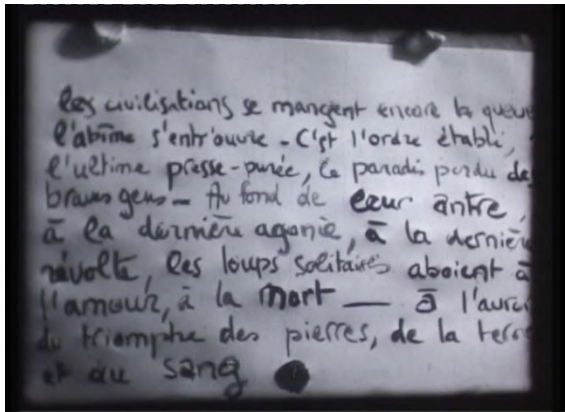 les civilisations se mangent encore la queue
l'abîme s'entr'ouvre - C'est l'ordre établi,
l'ultime presse-purée, le paradis perdu des
braves gens - Au fond de leur antre,
à la dernière agonie, à la dernière
révolte, les loups solitaires aboient à
l'amour, à la mort — à l'aurore
du triomphe des pierres, de la terre
et du sang